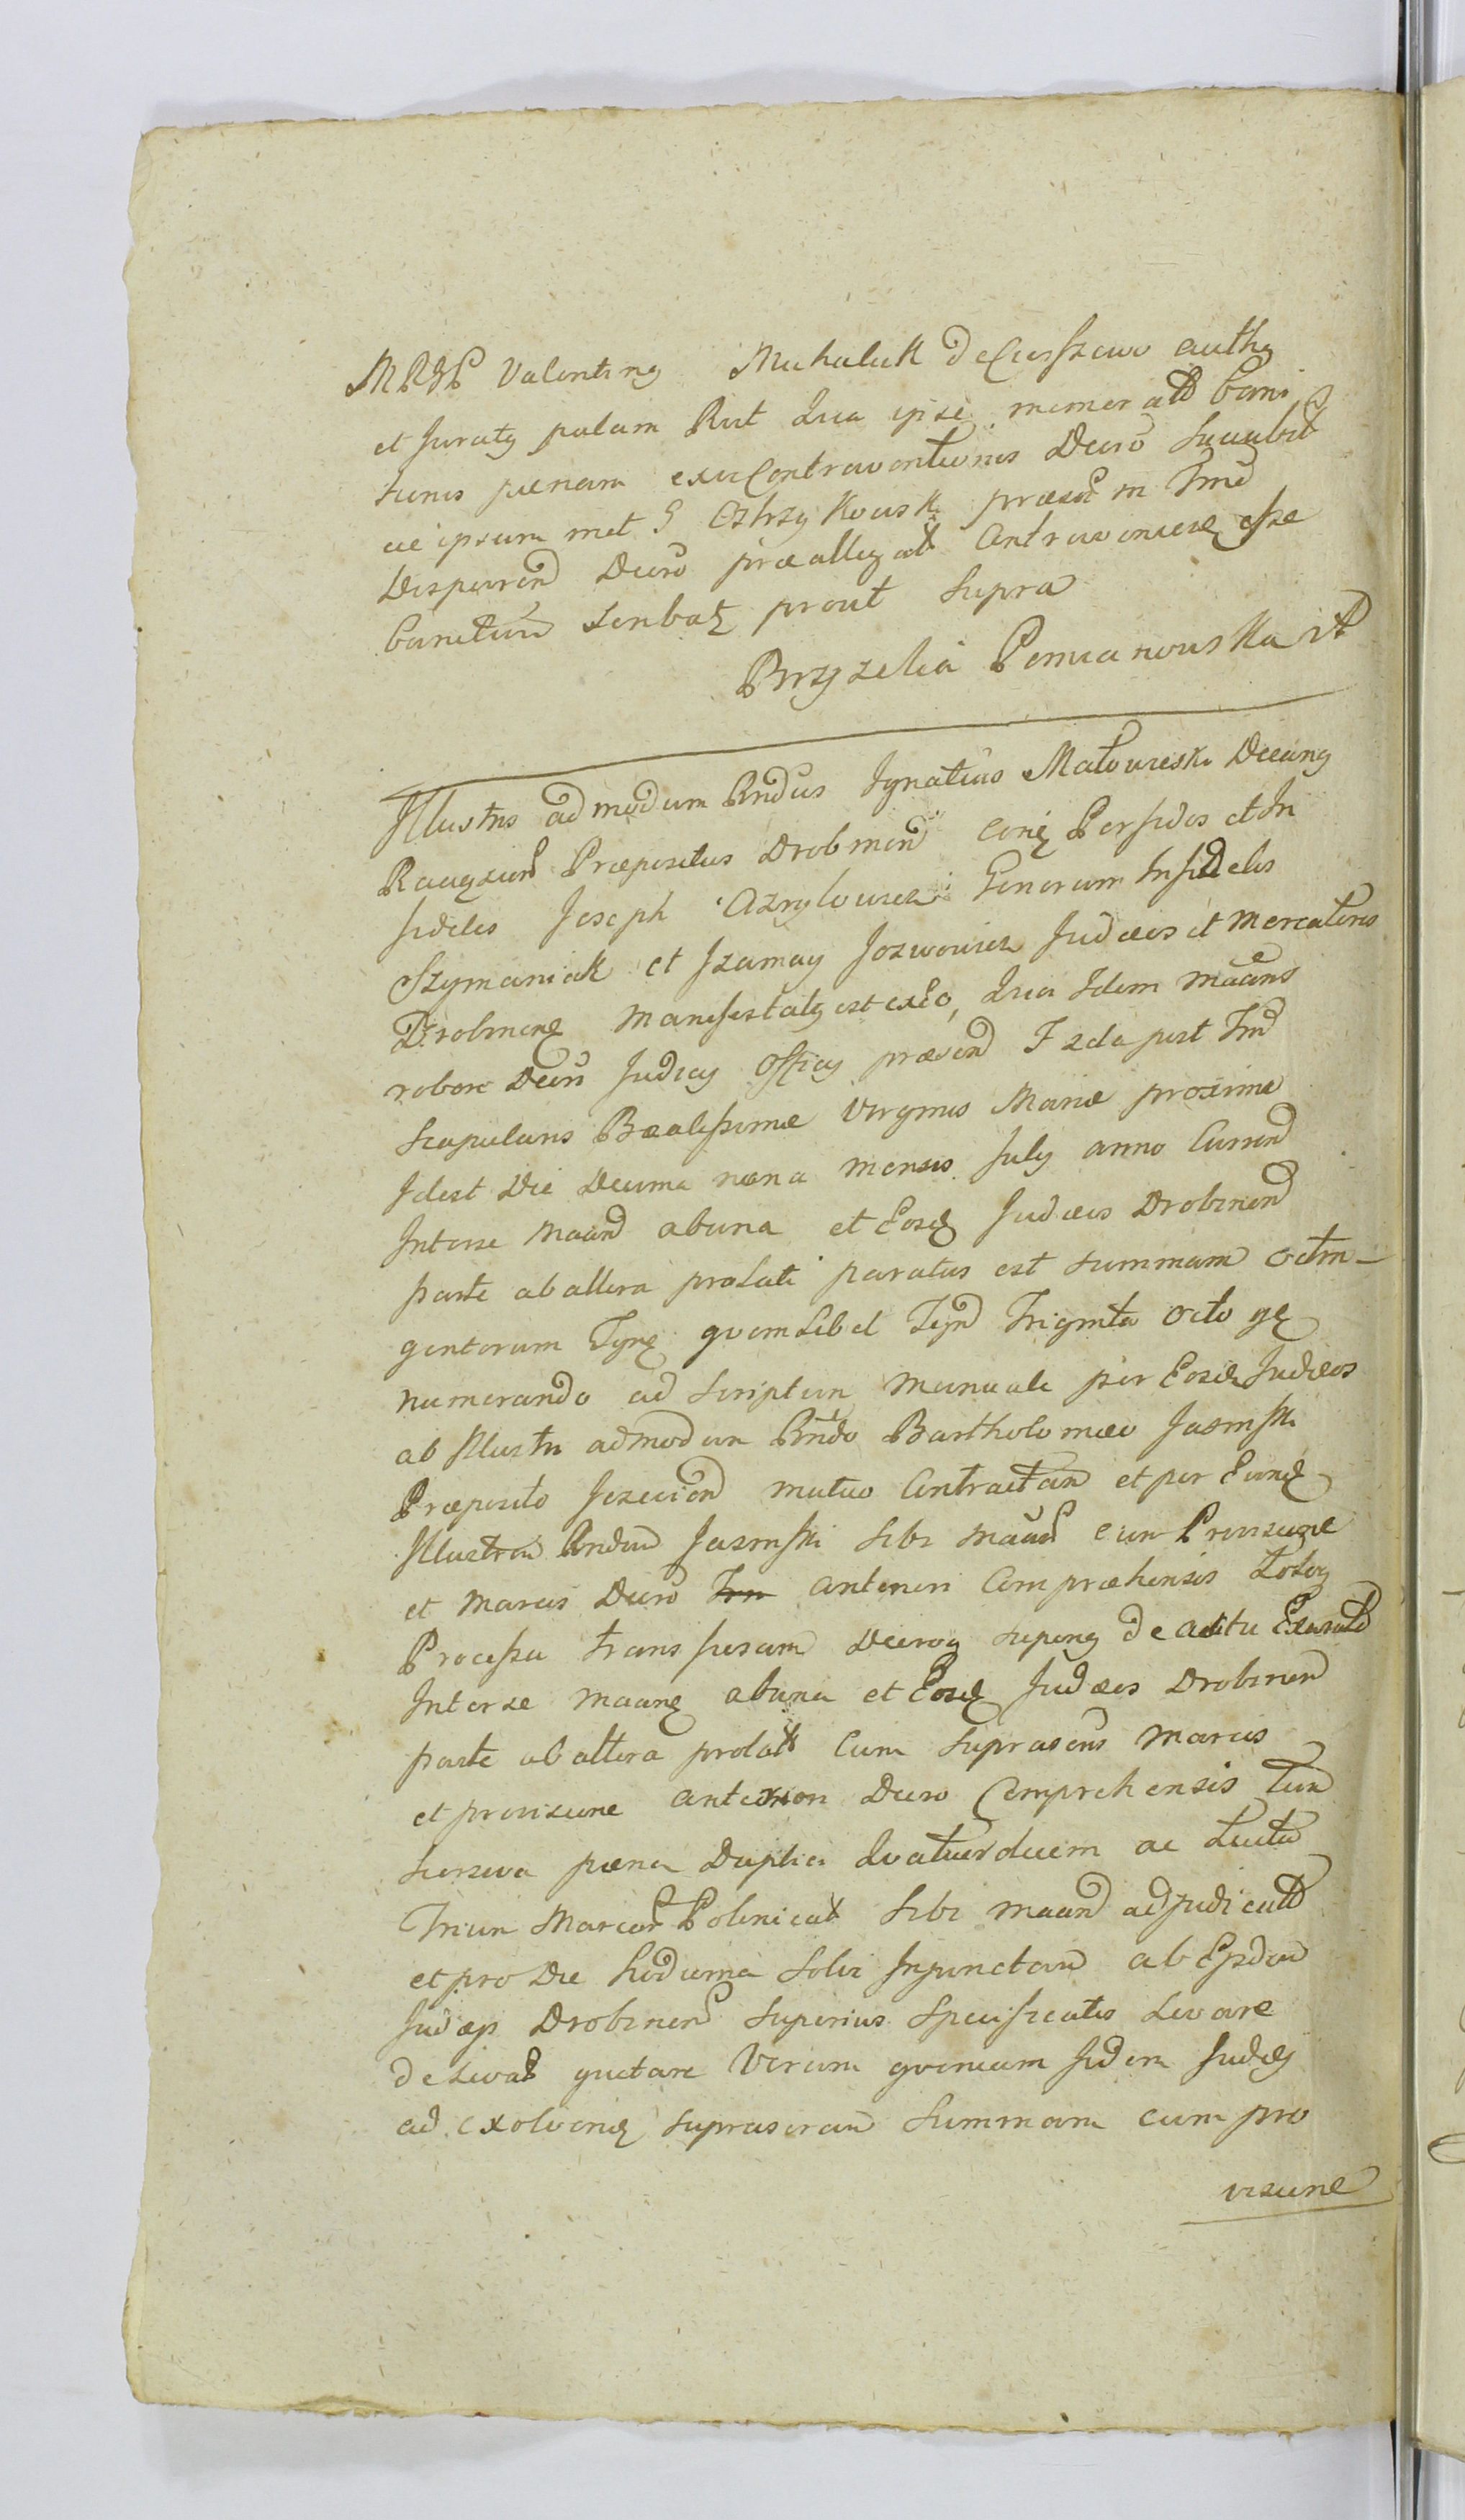 MRGP Valentinus Michaluk de Ciesszewo authus
et juratus palam Rit Quia ipse memoratd bani
tionis pænam exu Contraventionis Decro succubt
ac ipsum met G Ostrzykowski præsen in Tmo
Desperend Decro præallegat Contravenisse esse
banitum senbat prout supra
Brzyzelia Pomianowska it
Illustris admodum Rndus Ignatius Małowieski Decanus
Raciązien Præpositus Drobinen contra Perfidos et In
fideles Joseph Generum Infideles
Szymaniak et Szamay Jozwowicz Judæos et Mercatores
Drobinen Manifestatus est exeo, Quia Idem Maans
robore Decri Judicy Officy præsend F 2da post Fm
Scapularis Beatissimæ Virginis Mariæ proxima
Idest Die Decima nona Mensis July anno Currend
Interse Maand abuna et Eosd Judæos Drobinend
parte ab altera prolati paratus est summam octin-
gentorum Tynf quemlibet Tynf Triginta octo g
numerando ad scriptum manuale per Eosd Judæos
ab Illustri admodum Rndo Bartholomæo Jasinski
Præposito mutuo Contractam et per Eund
Illustrem Rndum Jasinski sibi Maand cum Provisione
et Marcis Decro Trn anteriori Compræhensis totoq
Processu transfusam Decroq superius de actu Exarato
Interse Maand abuna et Eosd Judæos Drobinend
parte ab altera prolat Cum suprascris Marcis
et provisione anteriori Decro Comprehensis tum
pæna Duplici Quatuordecim ac luita
Trium Marcar Polonicat sibi Maand adjudicatd
et pro Die hodierna solvi Injunctam ab Eisdem
Judæis Drobinend superius specificatis Levare
deLevat quietare Verum quoniam Iidem Judæi
ad exolvend suprascram summam cum pro
visione